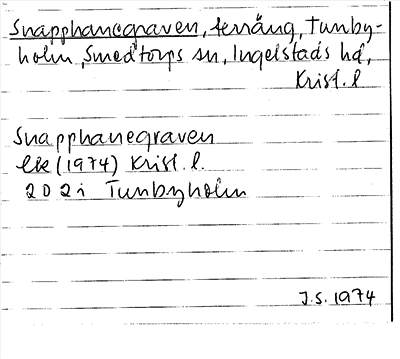 Snapphanegraven, terräng, Tunby-
holm, Smedtorps sn, Ingelstads hd,
Krist. l
Snapphanegraven
Ek (1974) Krist. l.
202i Tunbyholm
J.S. 1974